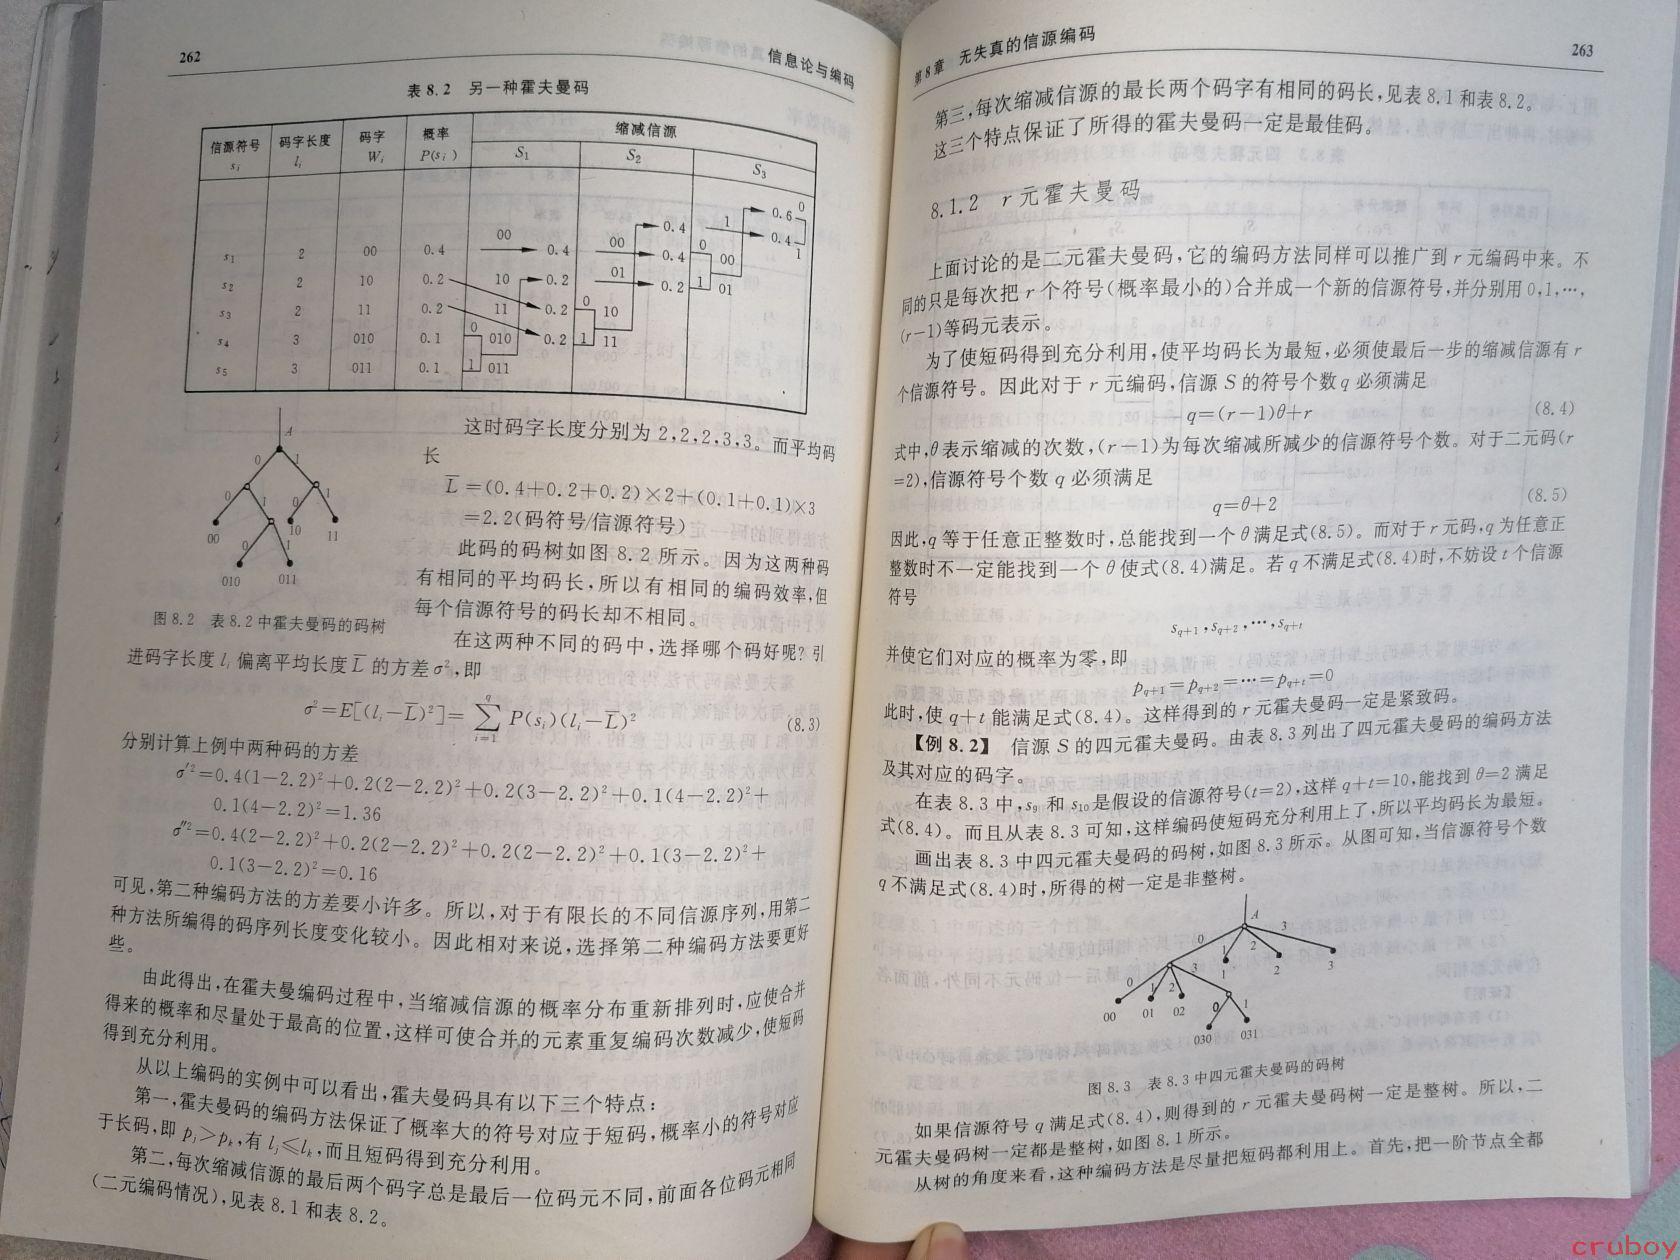 262
信息论与编码
表8.2 另一种霍夫曼码
信源符号 码字长度 码字 概率 缩减信源
sᵢ lᵢ Wᵢ P(sᵢ) S₁ S₂ S₃
s₁ 2 00 0.4 00 0.4 00 0.4 1 0.6 0
s₂ 2 10 0.2 10 0.2 01 0.4 0 00 0.4 1
s₃ 2 11 0.2 11 0.2 0 10 0.2 1 01
s₄ 3 010 0.1 0 010 0.2 1 11
s₅ 3 011 0.1 1 011
A
0 1
0 1 0 1
00 10 11
0 1
010 011
图8.2 表8.2中霍夫曼码的码树
这时码字长度分别为2,2,2,3,3。而平均码
长
L̅=(0.4+0.2+0.2)×2+(0.1+0.1)×3
=2.2(码符号/信源符号)
此码的码树如图8.2所示。因为这两种码
有相同的平均码长,所以有相同的编码效率,但
每个信源符号的码长却不相同。
在这两种不同的码中,选择哪个码好呢?引
进码字长度lᵢ偏离平均长度L̅的方差σ²,即
σ²=E[(lᵢ−L̅)²]=∑P(sᵢ)(lᵢ−L̅)² (8.3)
q
i=1
分别计算上例中两种码的方差
σ′²=0.4(1−2.2)²+0.2(2−2.2)²+0.2(3−2.2)²+0.1(4−2.2)²+
0.1(4−2.2)²=1.36
σ″²=0.4(2−2.2)²+0.2(2−2.2)²+0.2(2−2.2)²+0.1(3−2.2)²+
0.1(3−2.2)²=0.16
可见,第二种编码方法的方差要小许多。所以,对于有限长的不同信源序列,用第二
种方法所编得的码序列长度变化较小。因此相对来说,选择第二种编码方法要更好
些。
由此得出,在霍夫曼编码过程中,当缩减信源的概率分布重新排列时,应使合并
得来的概率和尽量处于最高的位置,这样可使合并的元素重复编码次数减少,使短码
得到充分利用。
从以上编码的实例中可以看出,霍夫曼码具有以下三个特点:
第一,霍夫曼码的编码方法保证了概率大的符号对应于短码,概率小的符号对应
于长码,即pⱼ>pₖ,有lⱼ⩽lₖ,而且短码得到充分利用。
第二,每次缩减信源的最后两个码字总是最后一位码元不同,前面各位码元相同
(二元编码情况),见表8.1和表8.2。
第8章 无失真的信源编码
263
第三,每次缩减信源的最长两个码字有相同的码长,见表8.1和表8.2。
这三个特点保证了所得的霍夫曼码一定是最佳码。
8.1.2 r元霍夫曼码
上面讨论的是二元霍夫曼码,它的编码方法同样可以推广到r元编码中来。不
同的只是每次把r个符号(概率最小的)合并成一个新的信源符号,并分别用0,1,⋯,
(r−1)等码元表示。
为了使短码得到充分利用,使平均码长为最短,必须使最后一步的缩减信源有r
个信源符号。因此对于r元编码,信源S的符号个数q必须满足
q=(r−1)θ+r (8.4)
式中,θ表示缩减的次数,(r−1)为每次缩减所减少的信源符号个数。对于二元码(r
=2),信源符号个数q必须满足
q=θ+2 (8.5)
因此,q等于任意正整数时,总能找到一个θ满足式(8.5)。而对于r元码,q为任意正
整数时不一定能找到一个θ使式(8.4)满足。若q不满足式(8.4)时,不妨设t个信源
符号
s_{q+1},s_{q+2},⋯,s_{q+t}
并使它们对应的概率为零,即
p_{q+1}=p_{q+2}=⋯=p_{q+t}=0
此时,使q+t能满足式(8.4)。这样得到的r元霍夫曼码一定是紧致码。
【例8.2】 信源S的四元霍夫曼码。由表8.3列出了四元霍夫曼码的编码方法
及其对应的码字。
在表8.3中,s₉和s₁₀是假设的信源符号(t=2),这样q+t=10,能找到θ=2满足
式(8.4)。而且从表8.3可知,这样编码使短码充分利用上了,所以平均码长为最短。
画出表8.3中四元霍夫曼码的码树,如图8.3所示。从图可知,当信源符号个数
q不满足式(8.4)时,所得的树一定是非整树。
A
0 1 2 3
1 2 3
0 1 2 3
00 01 02
0 1
030 031
图8.3 表8.3中四元霍夫曼码的码树
如果信源符号q满足式(8.4),则得到的r元霍夫曼码树一定是整树。所以,二
元霍夫曼码树一定都是整树,如图8.1所示。
从树的角度来看,这种编码方法是尽量把短码都利用上。首先,把一阶节点全都
cruboy